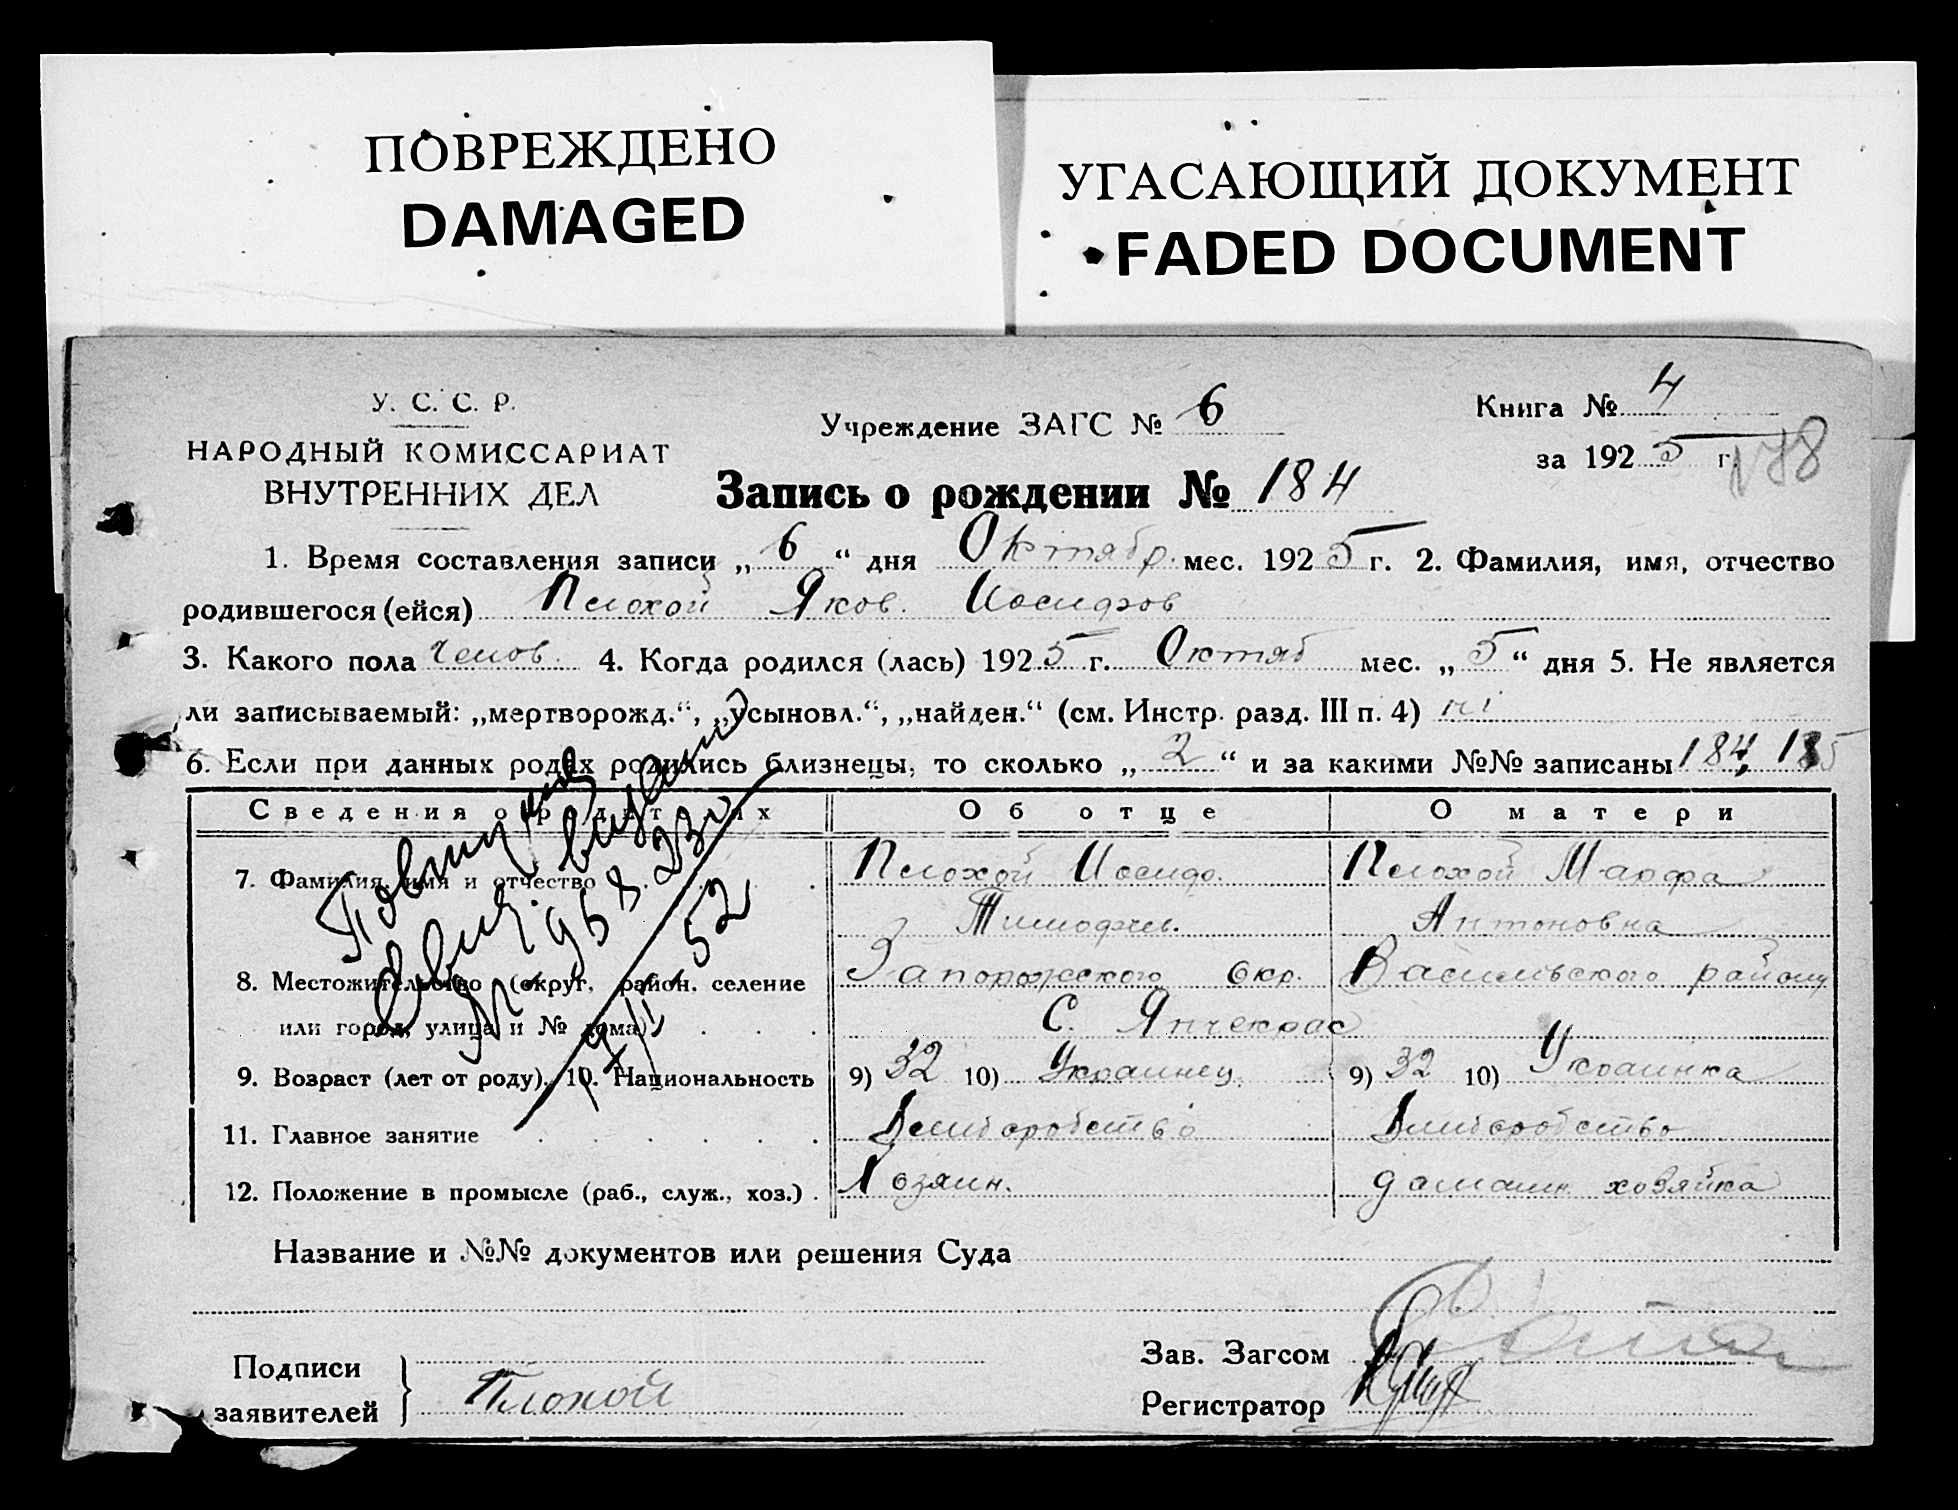 ПОВРЕЖДЕНО
DAMAGED
УГАСАЮЩИЙ ДОКУМЕНТ
FADED DOCUMENT
У. С. С. Р.
НАРОДНЫЙ КОМИССАРИАТ
ВНУТРЕННИХ ДЕЛ
Учреждение ЗАГС № 6
Книга № 4
за 1925 г.
178
Запись о рождении № 184
1. Время составления записи „6“ дня Октябр. мес. 1925 г. 2. Фамилия, имя, отчество
родившегося (ейся) Плохой Яков. Иосифов
3. Какого пола Челов. 4. Когда родился (лась) 1925 г. Октяб мес. „5“ дня 5. Не является
ли записываемый: „мертворожд.“, „усыновл.“, „найден.“ (см. Инстр. разд. III п. 4) ні
6. Если при данных родах родились близнецы, то сколько „2“ и за какими №№ записаны 184, 185
Сведения о родителях Об отце О матери
7. Фамилия, имя и отчество Плохой Иосиф. Плохой Марфа
Тимофеев. Антоновна
8. Местожительство (округ, район, селение Запорожского окр. Василивського району
или город, улица и № дома) С. Янчекрас
9. Возраст (лет от роду). 10. Национальность 9) 32 10) Украинец. 9) 32 10) Украинка
11. Главное занятие Хлиборобство Хлиборобство
12. Положение в промысле (раб., служ., хоз.) Хозяин. домашн хозяйка
Повторное
свид. выдано
№ 968230
52
Название и №№ документов или решения Суда
Подписи
заявителей Плохой
Зав. Загсом
Регистратор